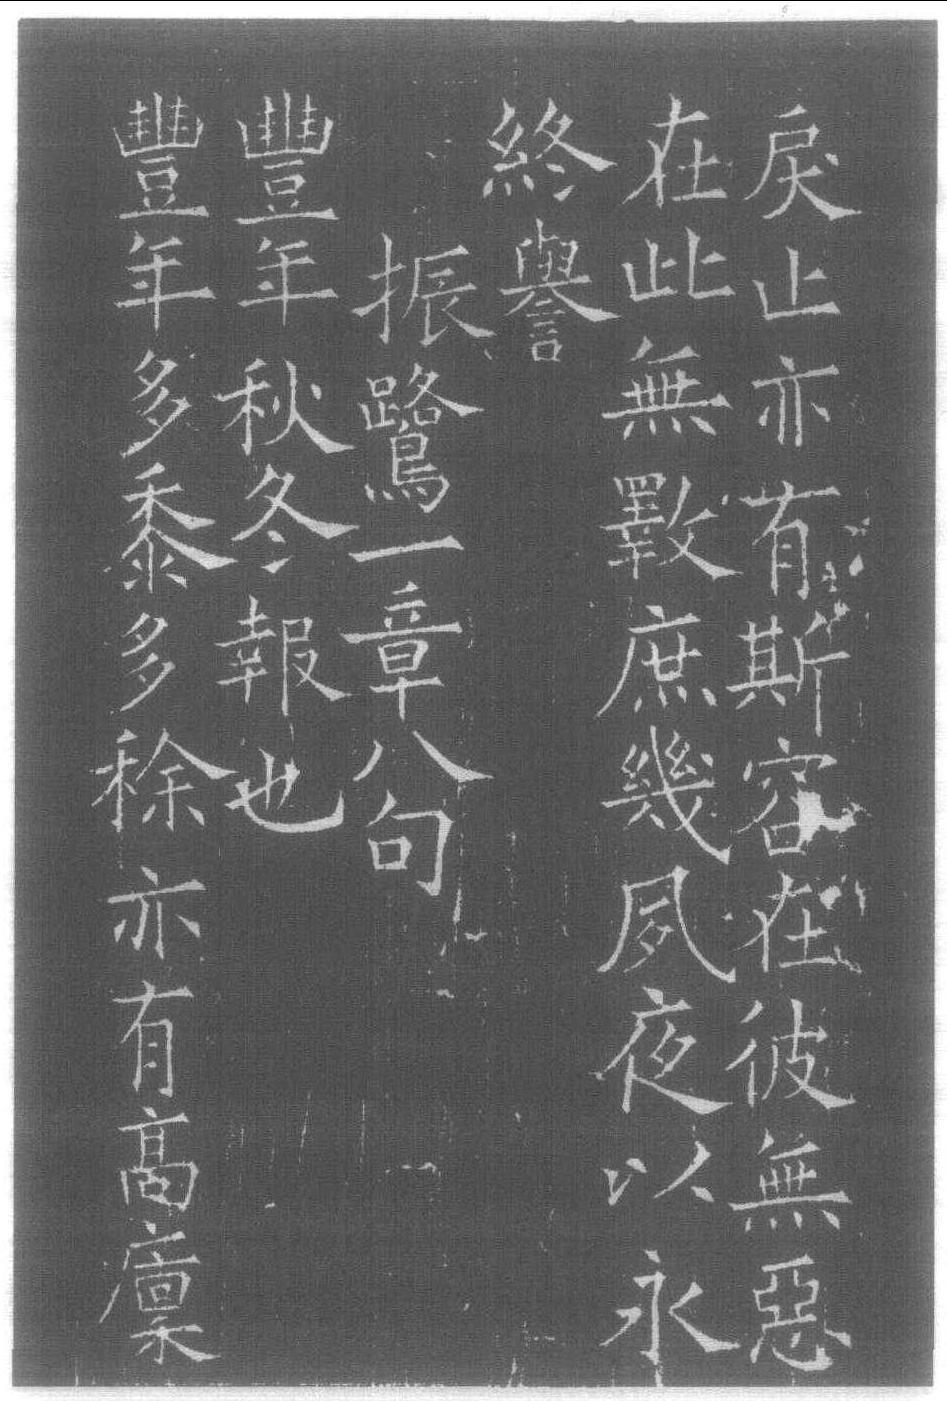 戾止亦有斯容在彼無惡
在此無斁庶幾夙夜以永
終譽
振鷺一章八句
豐年秋冬報也
豐年多黍多稌亦有高廩